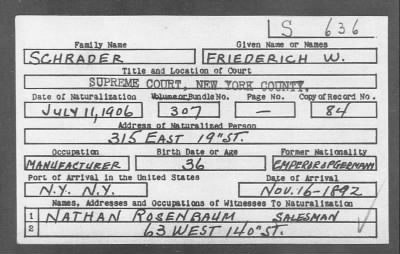 S 636
Family Name Given Name or Names
SCHRADER FRIEDERICH W.
Title and Location of Court
SUPREME COURT, NEW YORK COUNTY.
Date of Naturalization Volume or Bundle No. Page No. Copy of Record No.
JULY 11, 1906 307 — 84
Address of Naturalized Person
315 EAST 19" ST.
Occupation Birth Date or Age Former Nationality
MANUFACTURER 36 EMPEROR OF GERMANY
Port of Arrival in the United States Date of Arrival
N.Y. N.Y. NOV. 16-1892
Names, Addresses and Occupations of Witnesses To Naturalization
1 NATHAN ROSENBAUM SALESMAN
2 63 WEST 140" ST.